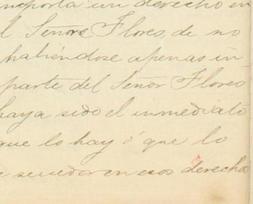 importa un derecho en
l Señor Flores, de no
habiéndose apenas in-
parte del Señor Flores
haya sido el inmediato
que lo hay ó que lo
sucedor en esos derecho